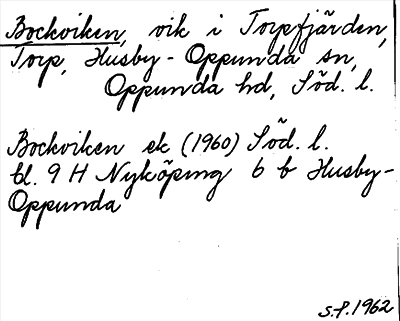 Bockviken, vik i Torpfjärden,
Torp, Husby-Oppunda sn,
Oppunda hd, Söd. l.
Bockviken ek (1960) Söd. l.
bl. 9 H Nyköping 6 b Husby-
Oppunda
S.P. 1962